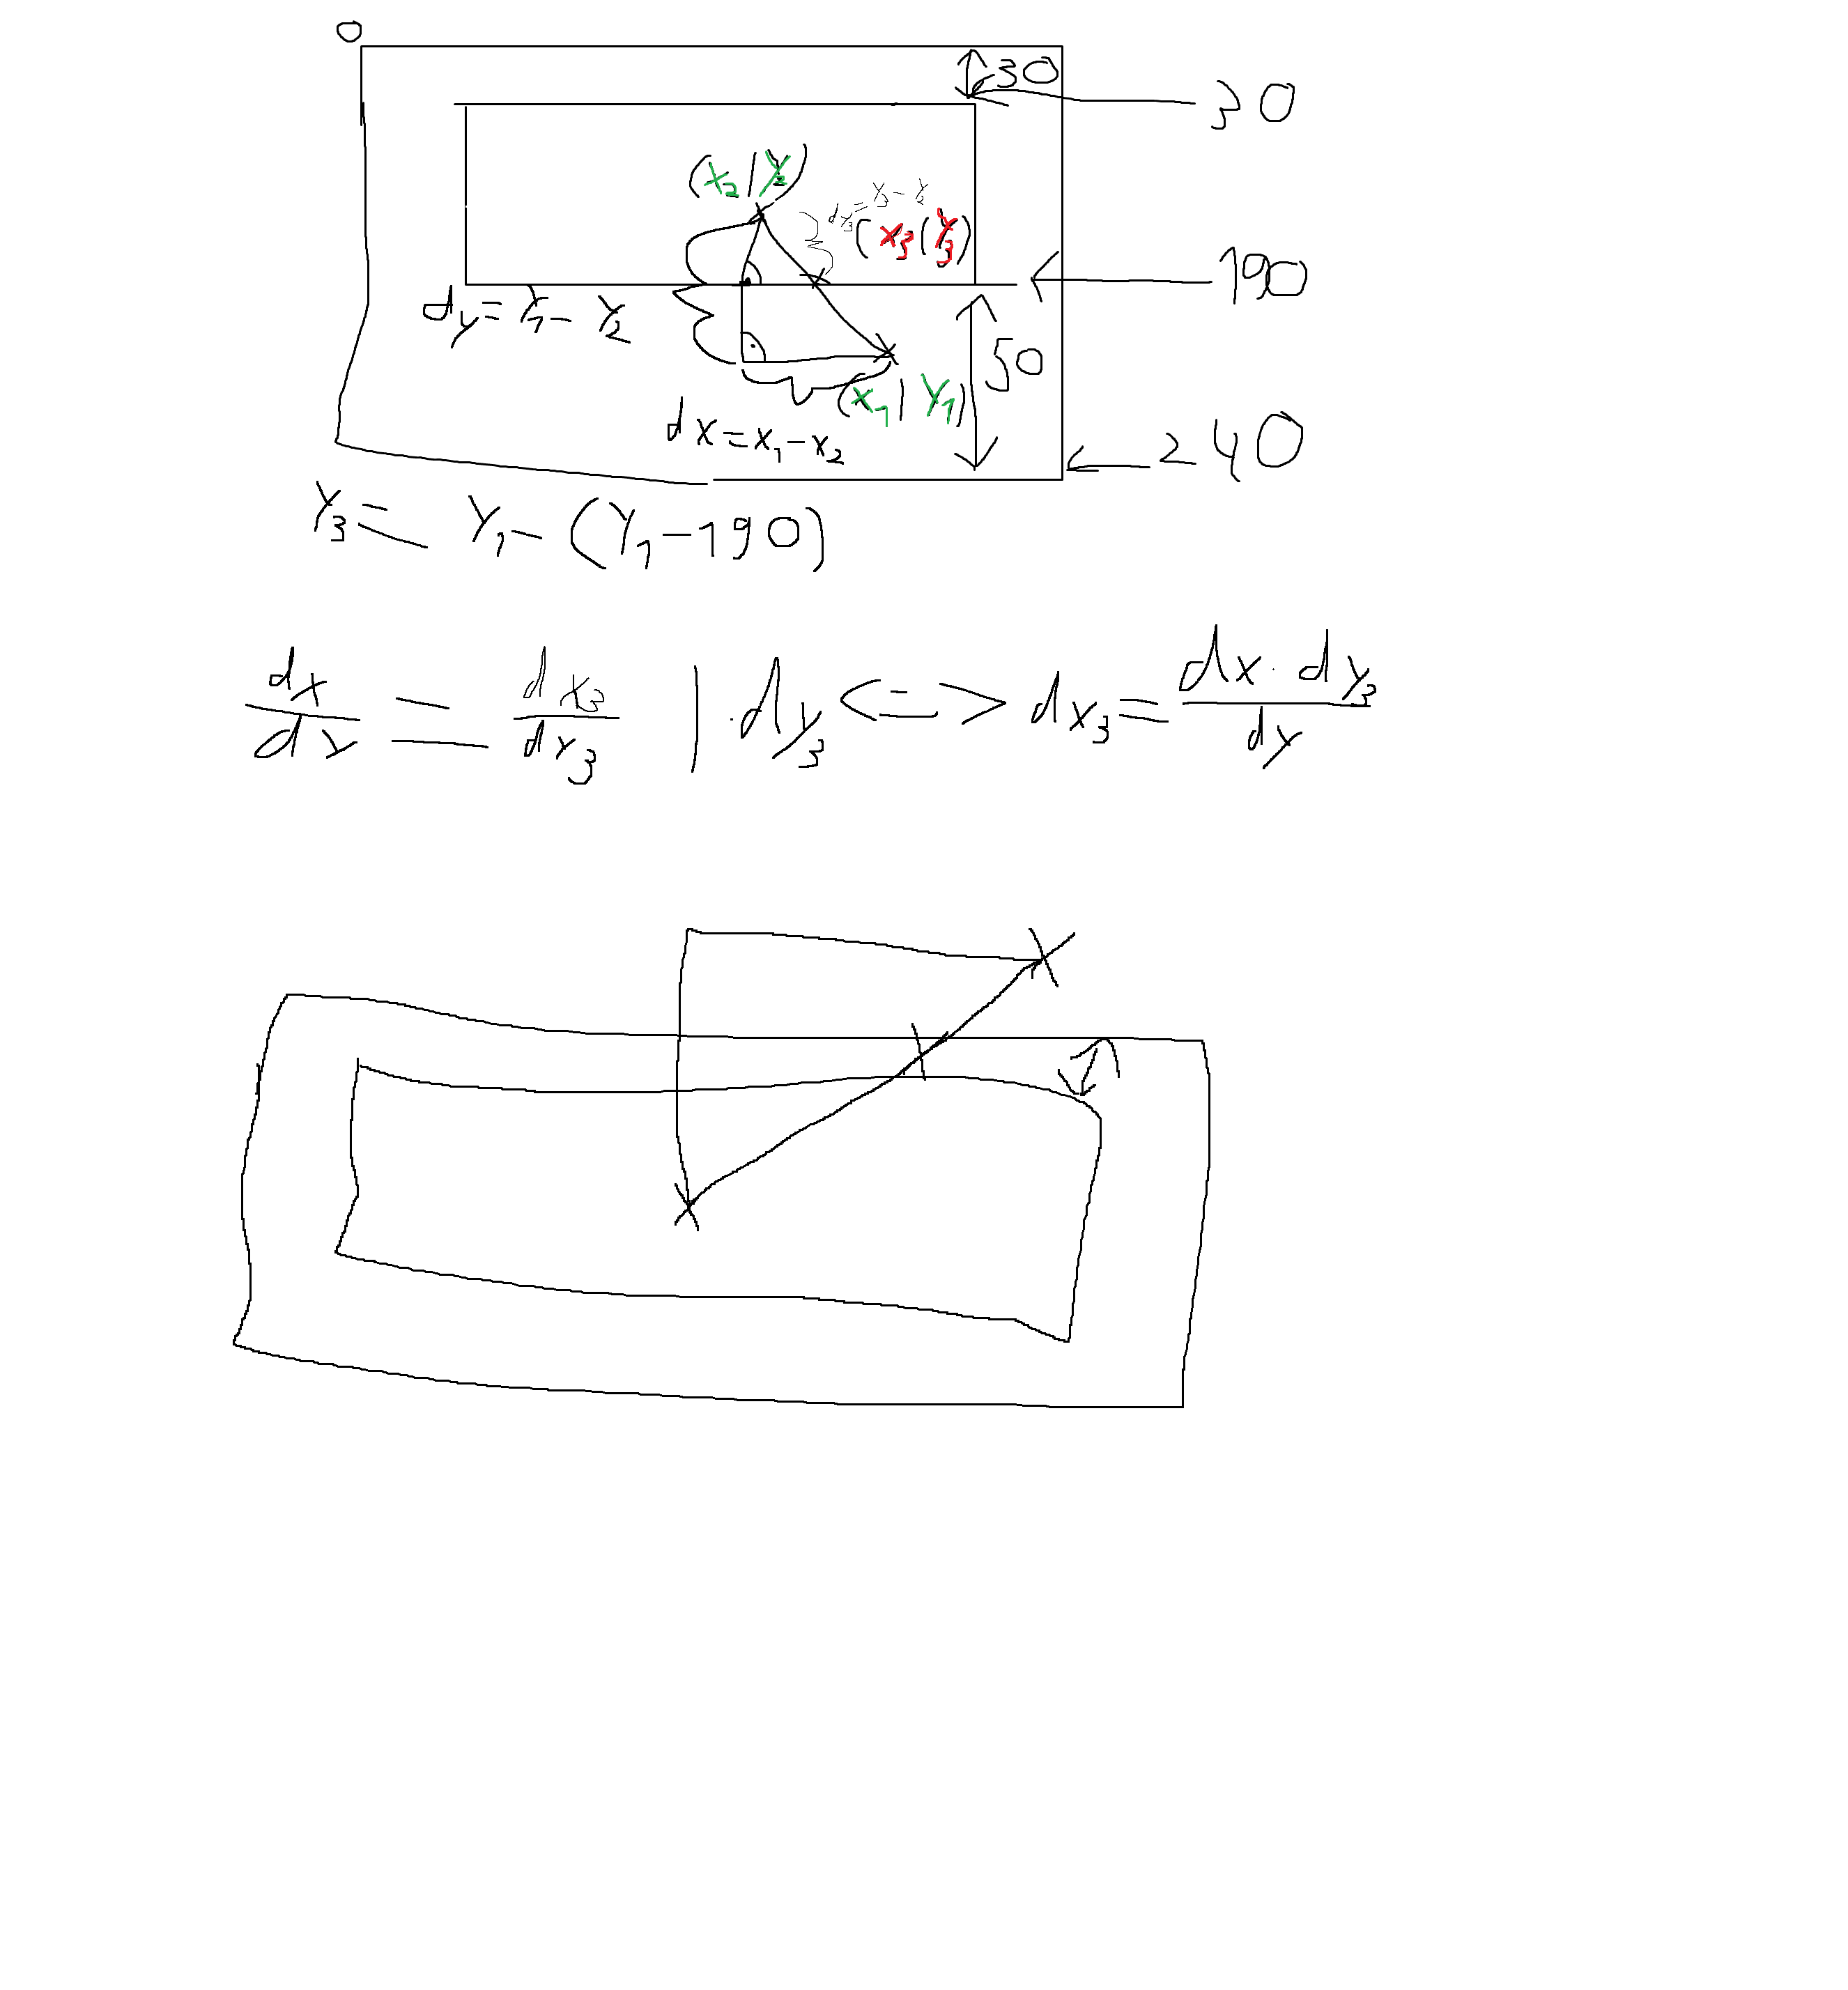 0
30
30
(x₂|y₂)
dy₃=y₃-y₂
(x₃(y₃)
190
dy=y₁-y₂
50
(x₁|y₁)
dx=x₁-x₂
240
y₃= y₁-(y₁-190)
dx/dy = dx₃/dy₃ |·dy₃ <=> dx₃= dx·dy₃/dy